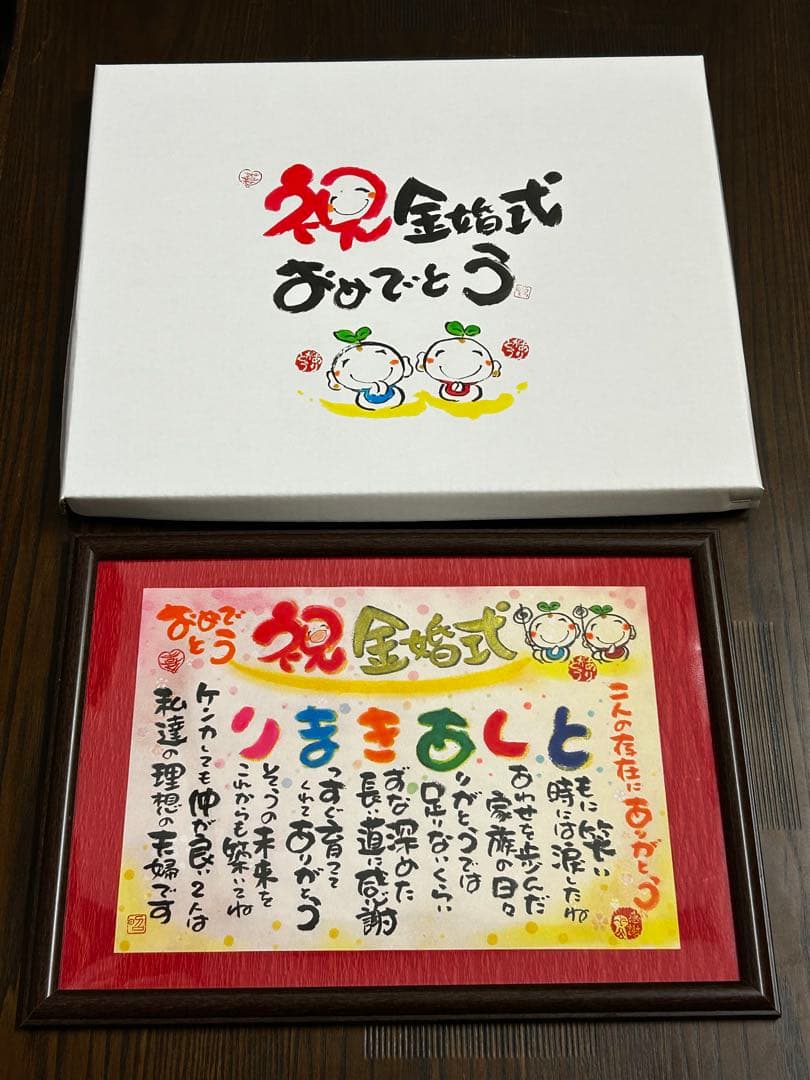 祝金婚式
おめでとう
おめで
とう
祝金婚式
二人の存在にありがとう
ともに笑い
時には涙したね
しあわせを歩んだ
家族の日々
ありがとうでは
足りないくらい
きずな深めた
長い道に感謝
まっすぐ育てて
くれてありがとう
りそうの未来を
これからも築いてね
ケンカしても仲が良い2人は
私達の理想の夫婦です